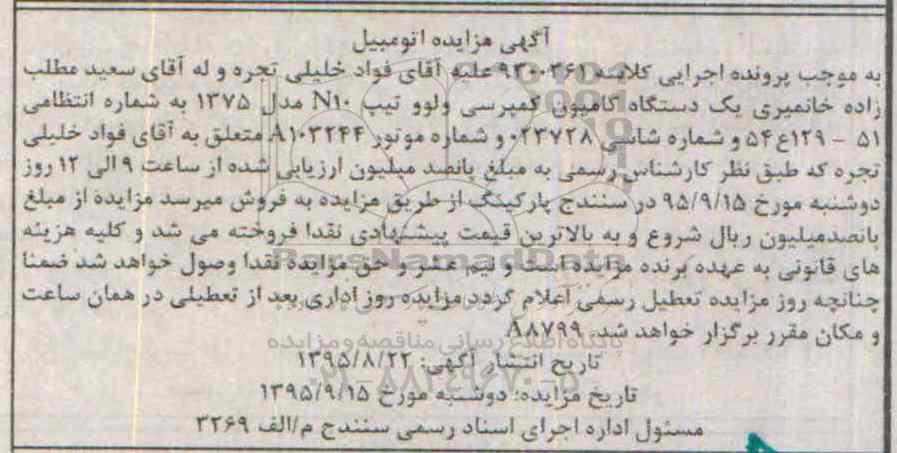 آگهی مزایده اتومبیل
به موجب پرونده اجرایی کلاسه ۹۳۰۰۳۶۱ علیه آقای فواد خلیلی تجره و له آقای سعید مطلب
زاده خانمیری یک دستگاه کامیون کمپرسی ولوو تیپ N۱۰ مدل ۱۳۷۵ به شماره انتظامی
۵۱ - ۱۲۹ع۵۴ و شماره شاسی ۰۲۳۷۲۸ و شماره موتور A۱۰۳۲۴۴ متعلق به آقای فواد خلیلی
تجره که طبق نظر کارشناس رسمی به مبلغ پانصد میلیون ارزیابی شده از ساعت ۹ الی ۱۲ روز
دوشنبه مورخ ۹۵/۹/۱۵ در سنندج پارکینگ از طریق مزایده به فروش میرسد مزایده از مبلغ
پانصدمیلیون ریال شروع و به بالاترین قیمت پیشنهادی نقدا فروخته می شد و کلیه هزینه
های قانونی به عهده برنده مزایده است و نیم عشر و حق مزایده نقدا وصول خواهد شد ضمنا
چنانچه روز مزایده تعطیل رسمی اعلام گردد مزایده روز اداری بعد از تعطیلی در همان ساعت
و مکان مقرر برگزار خواهد شد. ۸۸۷۹۹
ParsNamadData
پایگاه اطلاع رسانی مناقصه و مزایده
تاریخ انتشار آگهی: ۱۳۹۵/۸/۲۲
۰۲۱-۸۸۳۴۹۶۷۰-۵
تاریخ مزایده: دوشنبه مورخ ۱۳۹۵/۹/۱۵
مسئول اداره اجرای اسناد رسمی سنندج م/الف ۳۲۶۹